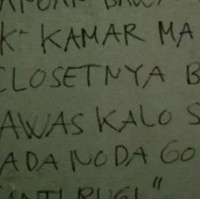 K- KAMAR MA
CLOSETNYA B
AWAS KALO S
ADA NODA GO